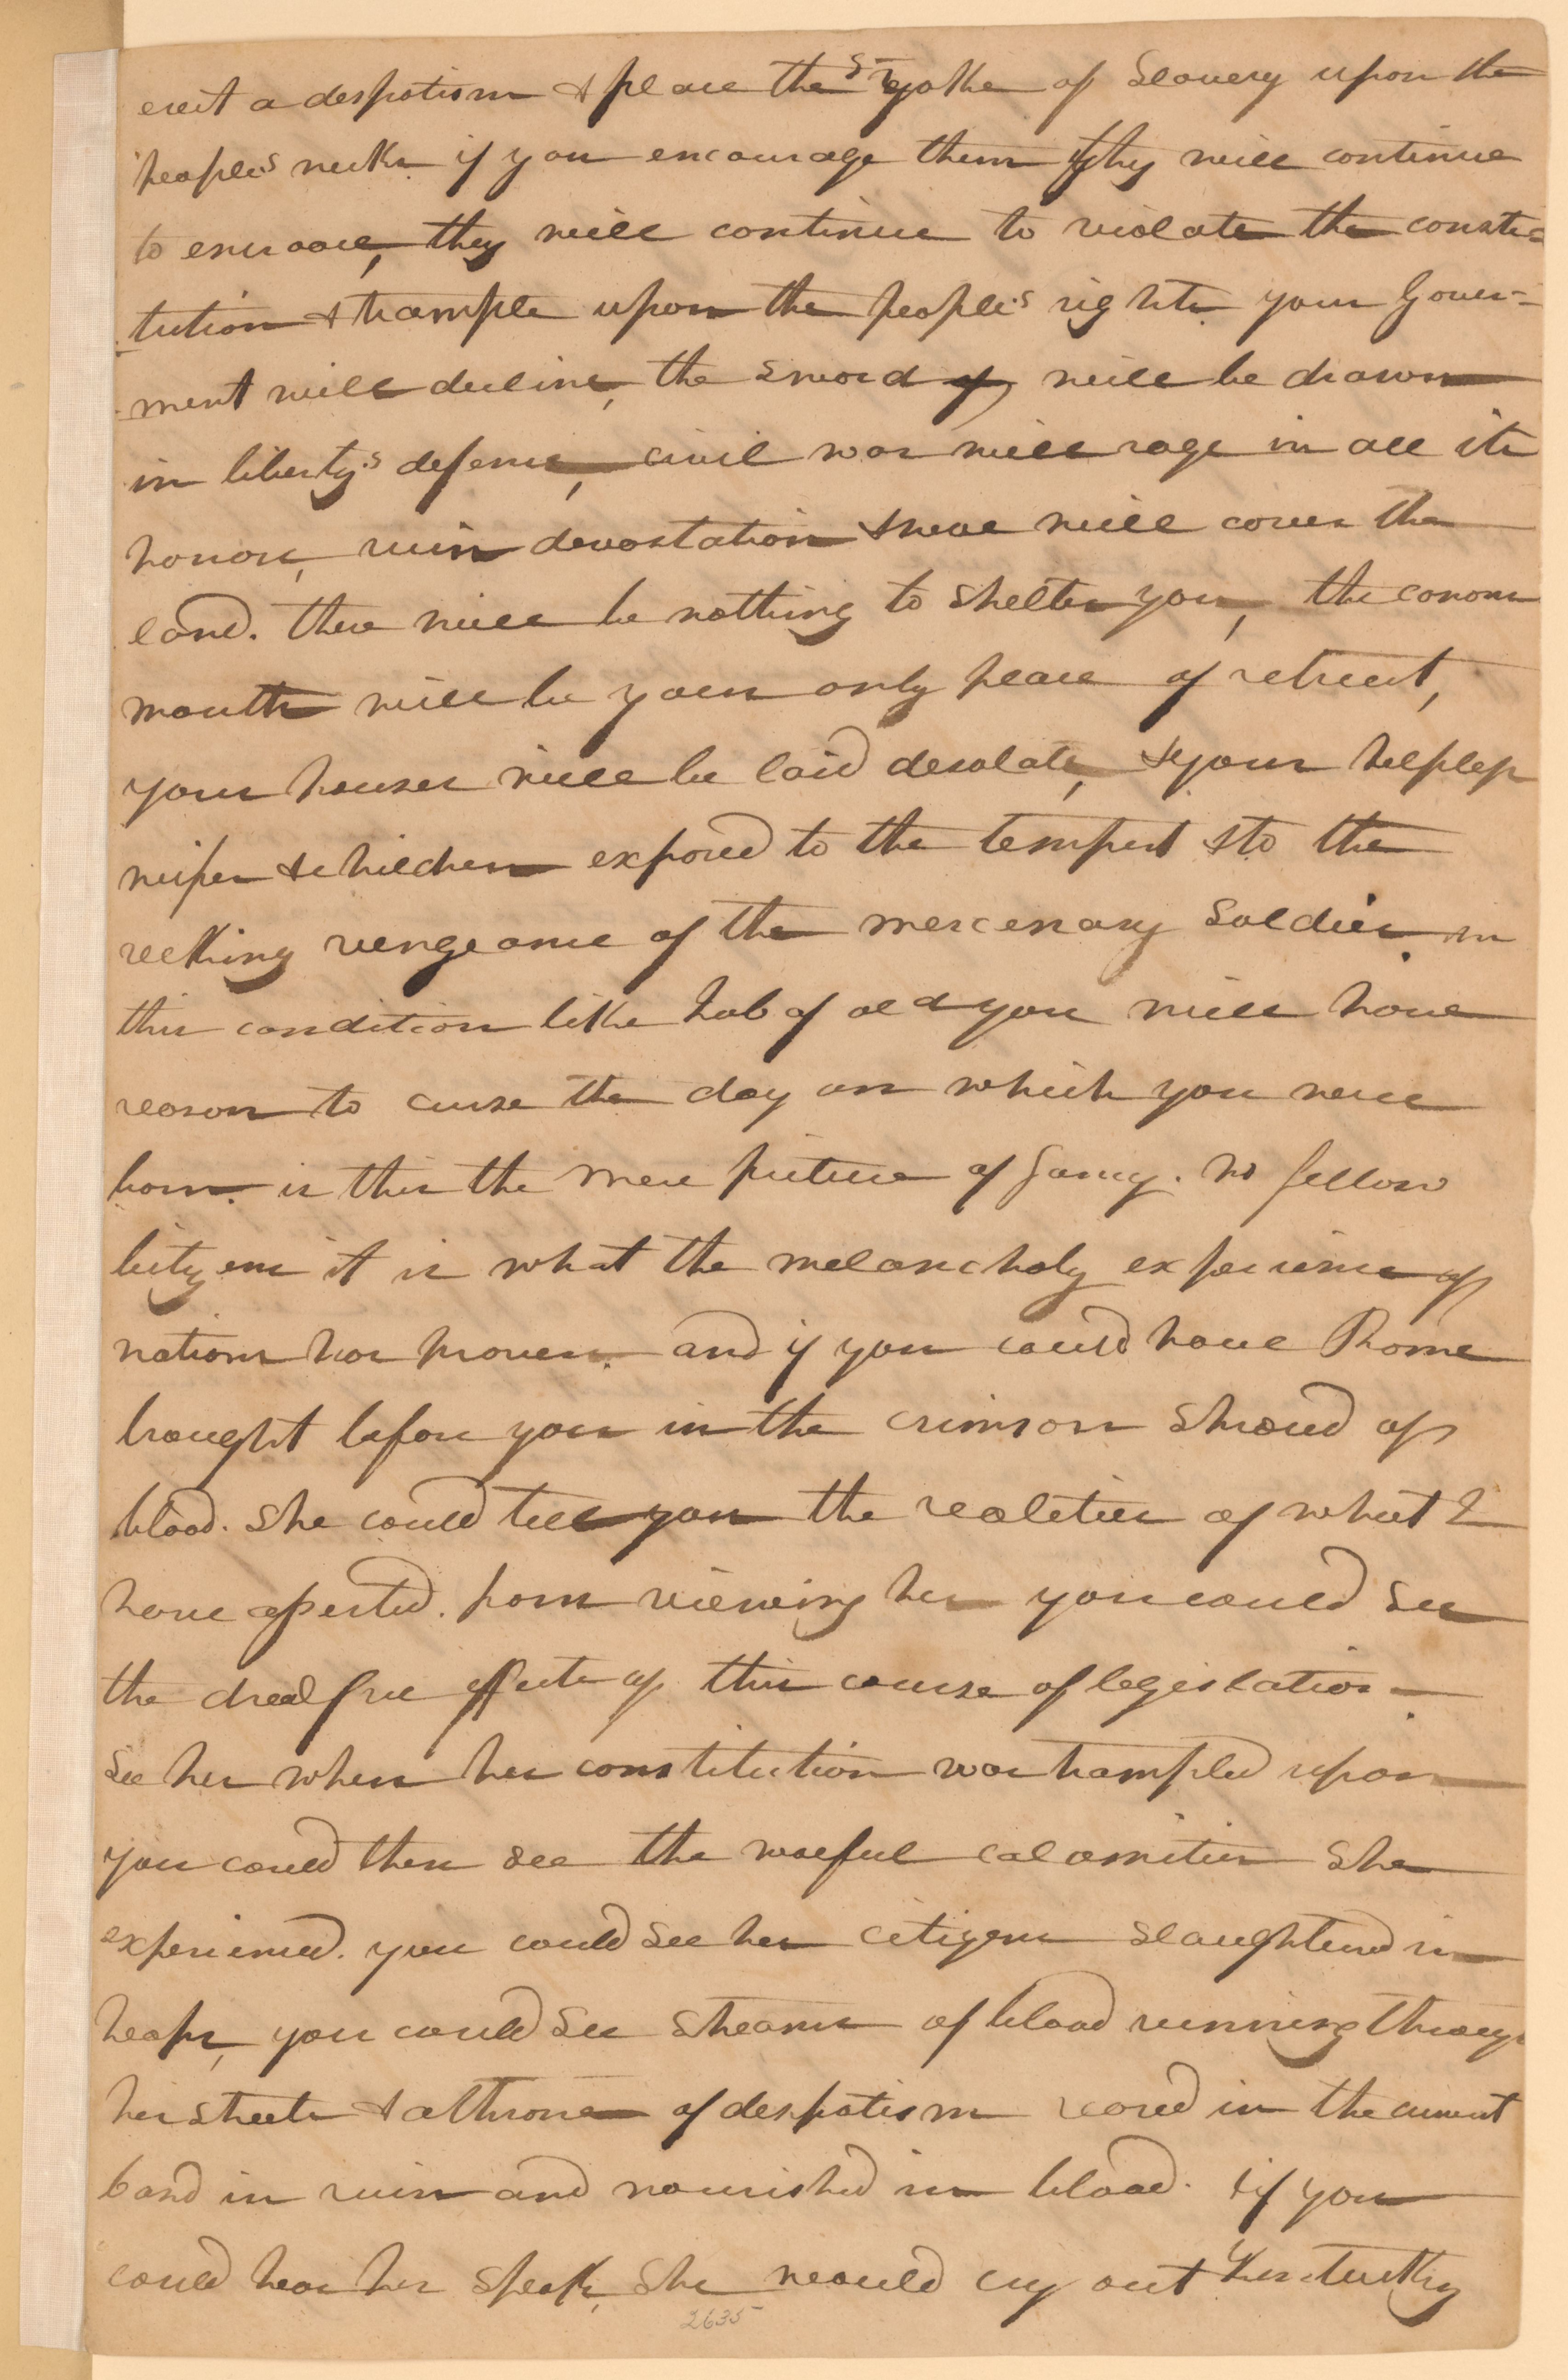 erect a despotism & place the yoke of Slavery upon the
people's necks if you encourage them they will continue
to encroach, they will continue to violate the consti=
tution & trample upon the people's rights your Gover=
ment will decline, the sword of will be drawn
in liberty's defense, civil war will rage in all its
horrors, ruin devastation & woe will cover the
land. there will be nothing to shelter you, the canons
mouth will be your only place of retreat,
your houses will be laid desolate, & your helpless
wifes & children exposed to the tempest & to the
recking vengeance of the mercenary Soldier. in
this condition like Job of old you will have
reason to curse the day on which you were
born. is this the mere picture of fancy. no fellow
Citizens it is what the melancholy experience of
nations has proven. and if you could have Rome
brought before you in the crimson shroud of
blood. She could tell you the realities of what I
have asserted. from viewing her you could see
the dreadfull effects of this course of legislation.
See her when her constitution was trampled upon
you could then see the woeful calamities she
experienced. you could see her citizens slaughtered in
heaps, you could see streams of blood running through
her streets & a throne of despotism reared in the current
band in ruin and nourished in blood. if you
could hear her speak, she would cry out Kentucky
2635